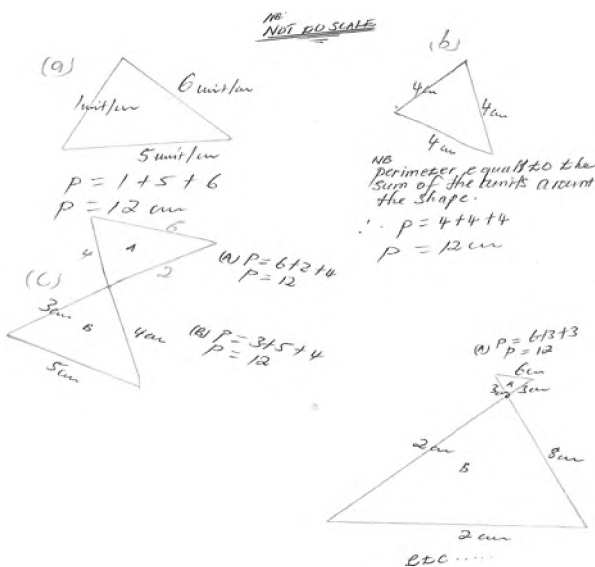 NB:
NOT TO SCALE
(a)
1unit/cm
6unit/cm
5unit/cm
P = 1 + 5 + 6
P = 12 cm
(b)
4cm
4cm
4cm
NB
perimeter equals to the
sum of the units arount
the shape.
∴ P = 4+4+4
P = 12cm
(C)
6
4
A
2
(A) P = 6+2+4
P = 12
3cm
B
4cm
5cm
(B) P = 3+5+4
P = 12
(A) P = 6+3+3
P = 12
6cm
A
3cm
3cm
2cm
B
8cm
2cm
etc .....